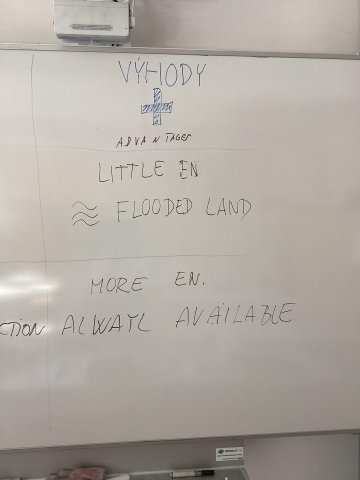 VÝHODY
ADVANTAGES
LITTLE EN
≈ FLOODED LAND
MORE EN.
CTION ALWAYL AVAILABLE